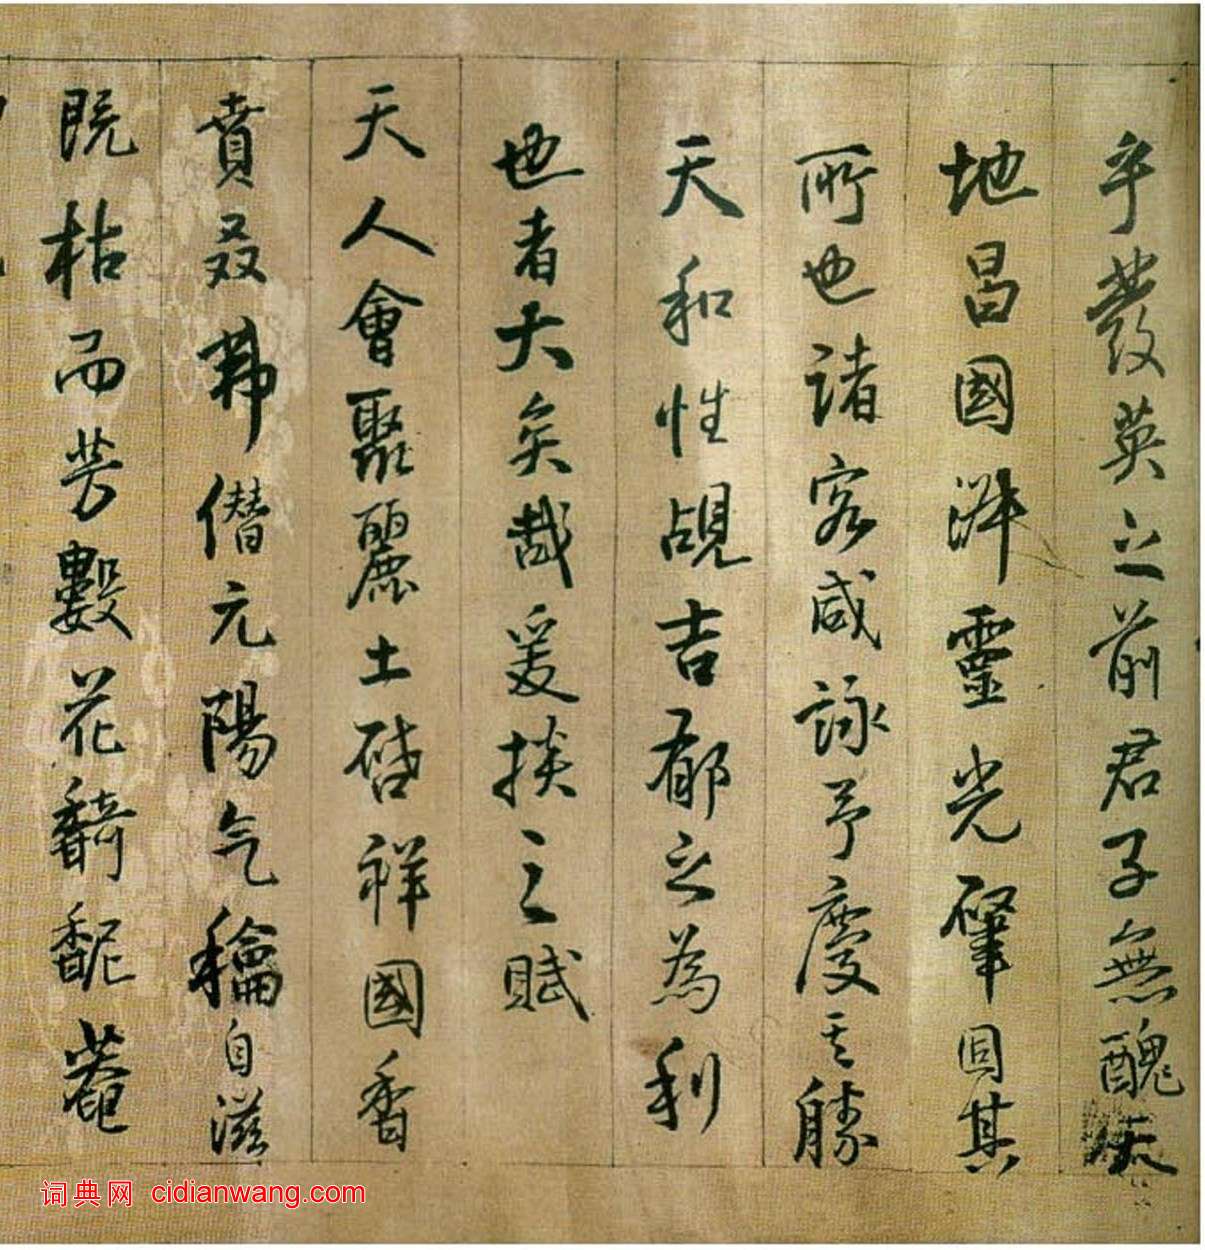 乎發英之前君子無醜天
地昌國洋靈光肇固其
所也諸客咸詠予慶之勝
天和性覘吉郁之為利
也者大矣哉爰掞之賦
天人會聚麗土啓祥國香
賁叒茀僭元陽气稐自滋
既枯而芳數花馣馜菴
词典网 cidianwang.com